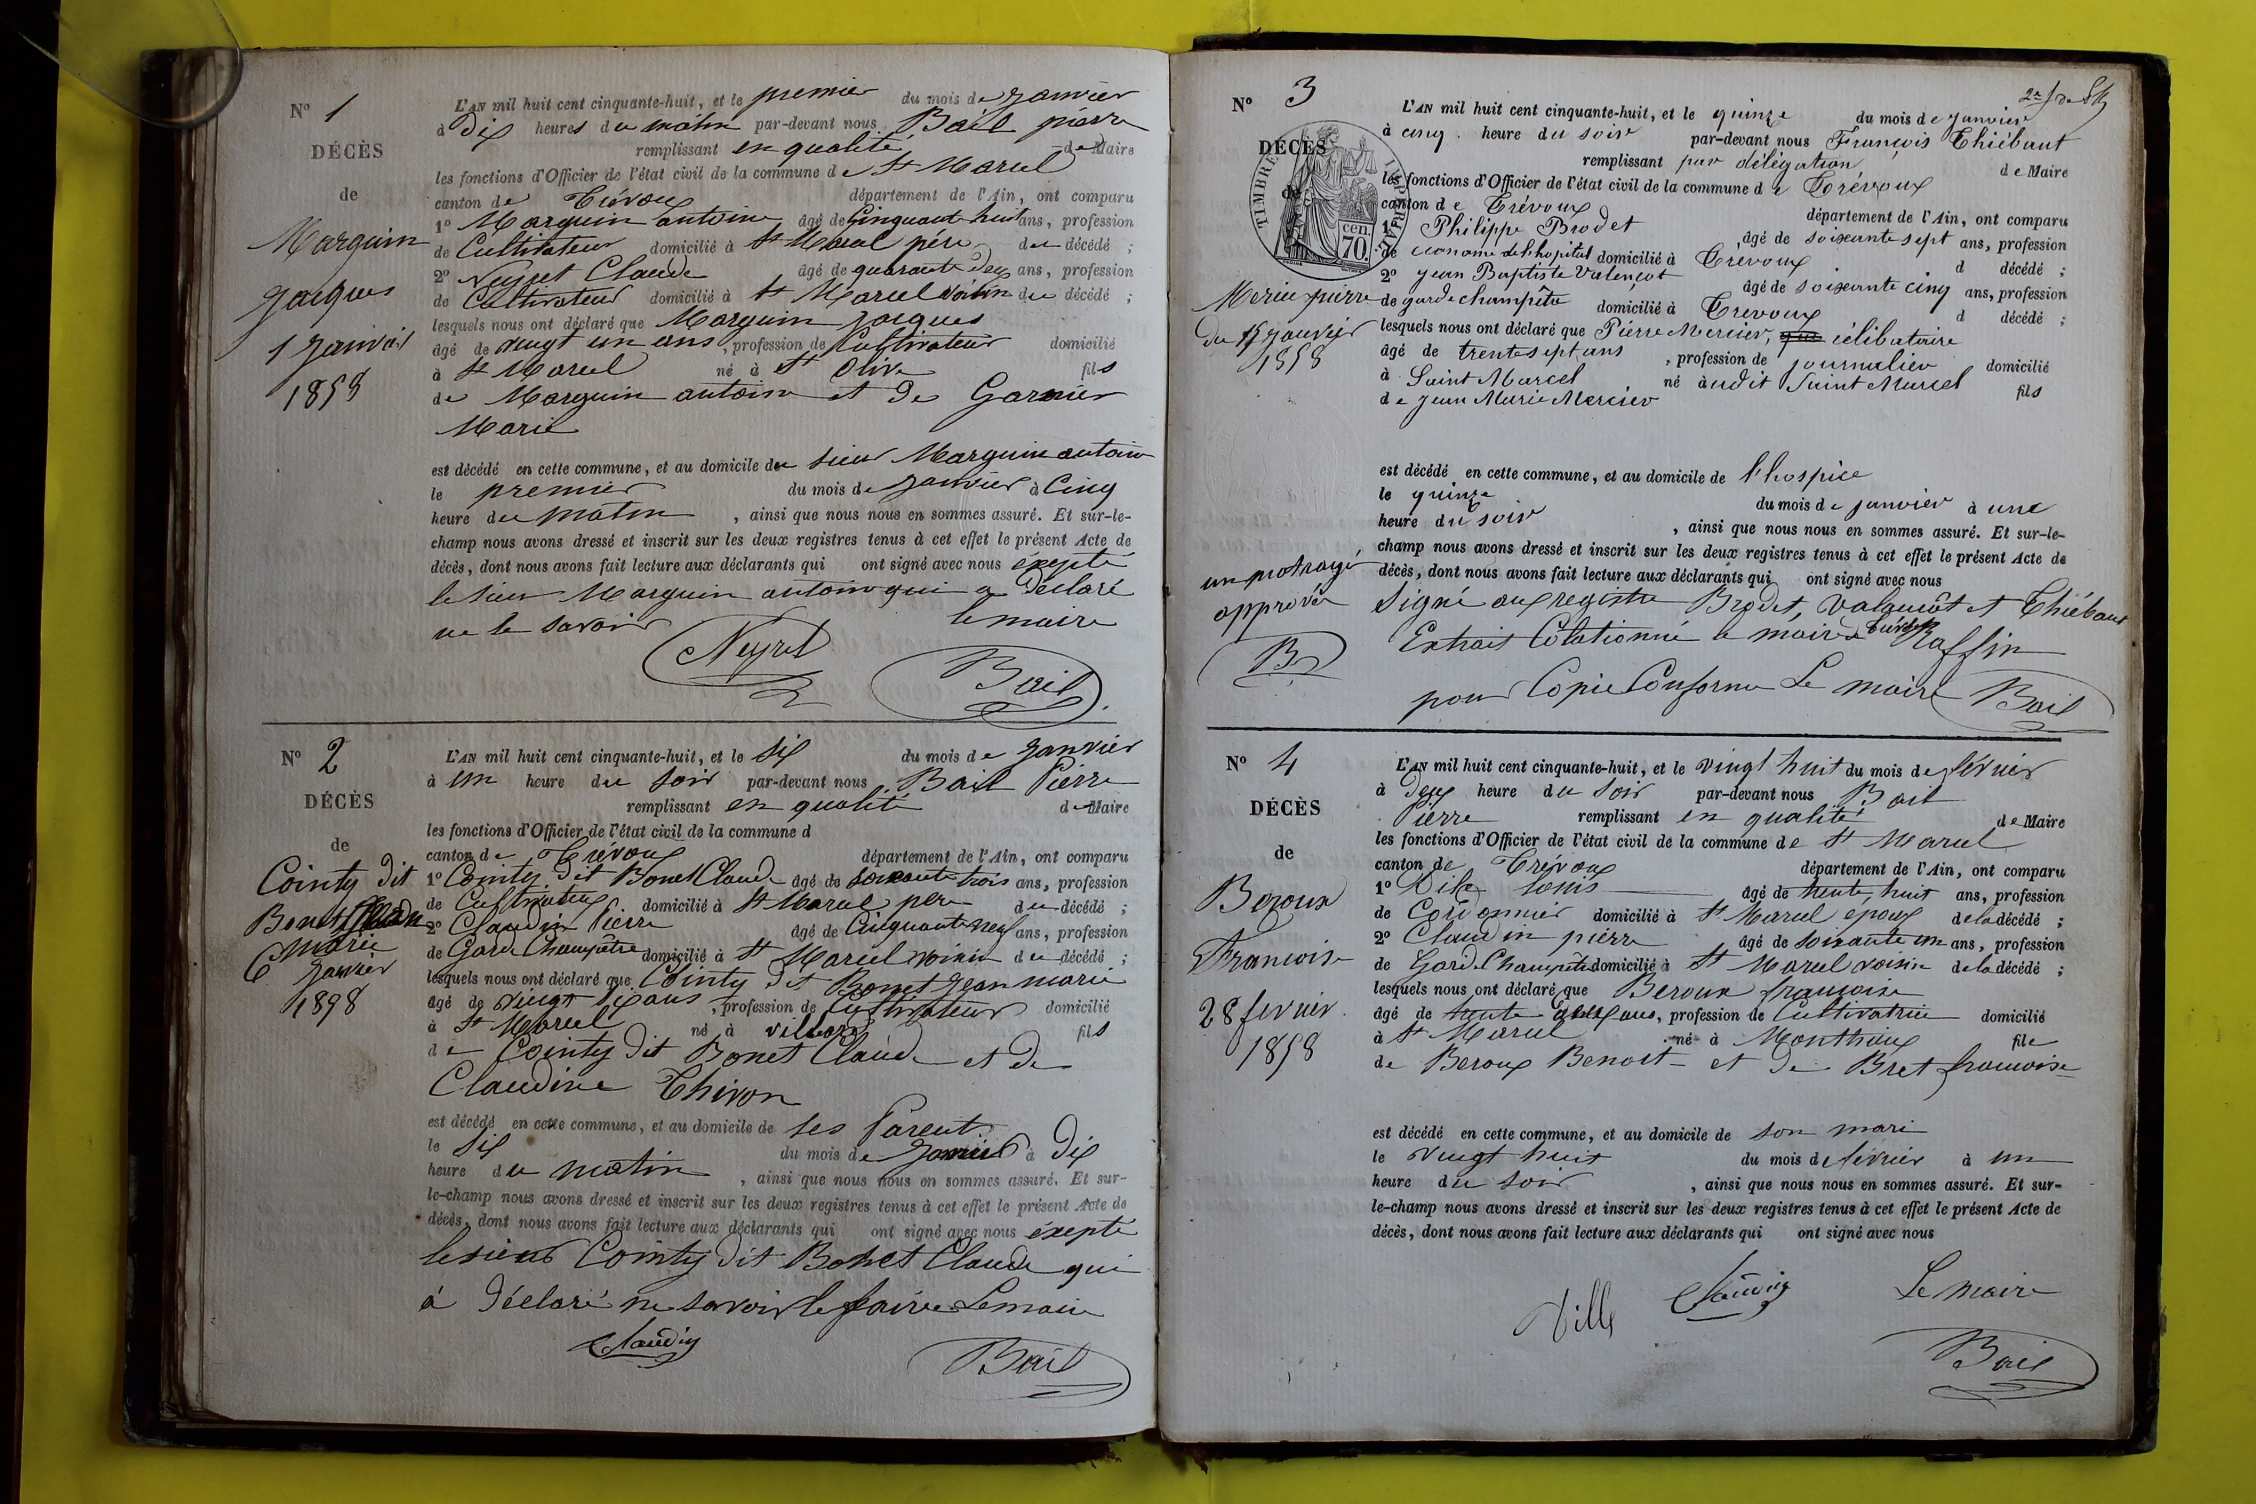 N° 1
DÉCÈS
de
Marguin
Jacques
1 Janvier
1858
L'AN mil huit cent cinquante-huit, et le premier du mois de Janvier
à Dix heures du matin par-devant nous Bail pierre
remplissant en qualité de Maire
les fonctions d'Officier de l'état civil de la commune de St Marcel
canton de Trévoux département de l'Ain, ont comparu
1° Marguin antoine âgé de Cinquante huit ans, profession
de Cultivateur domicilié à St Marcel père du décédé ;
2° Neyret Claude âgé de quarante deux ans, profession
de Cultivateur domicilié à St Marcel voisin du décédé ;
lesquels nous ont déclaré que Marguin Jacques
âgé de vingt un ans, profession de Cultivateur domicilié
à St Marcel né à St Olive fils
de Marguin antoine et de Garnier
Marie
est décédé en cette commune, et au domicile du sieur Marguin antoine
le premier du mois de Janvier à Cinq
heure du matin, ainsi que nous nous en sommes assuré. Et sur-le-
champ nous avons dressé et inscrit sur les deux registres tenus à cet effet le présent Acte de
décès, dont nous avons fait lecture aux déclarants qui ont signé avec nous éxepté
le sieur Marguin antoine qui a Déclaré
ne le savoir le maire
Neyret Bail
N° 2
DÉCÈS
de
Cointy dit
Bonet Jean
marie
6 Janvier
1898
L'AN mil huit cent cinquante-huit, et le six du mois de Janvier
à un heure du soir par-devant nous Bail Pierre
remplissant en qualité de Maire
les fonctions d'Officier de l'état civil de la commune d
canton de Trévoux département de l'Ain, ont comparu
1° Cointy dit Bonet Claude âgé de soixante trois ans, profession
de Cultivateur domicilié à St Marcel père du décédé ;
2° Claudin Pierre âgé de Cinquante neuf ans, profession
de Garde Champêtre domicilié à St Marcel voisin du décédé ;
lesquels nous ont déclaré que Cointy dit Bonet Jean marie
âgé de vingt six ans, profession de Cultivateur domicilié
à St Marcel né à villars fils
de Cointy dit Bonet Claude et de
Claudine Thivon
est décédé en cette commune, et au domicile de ses Parent
le six du mois de Janvier à Dix
heure du matin, ainsi que nous nous en sommes assuré. Et sur-
le-champ nous avons dressé et inscrit sur les deux registres tenus à cet effet le présent Acte de
décès, dont nous avons fait lecture aux déclarants qui ont signé avec nous éxepté
le sieur Cointy dit Bonet Claude qui
à Déclaré ne savoir le faire Le maire
Claudin
Bail
N° 3
DÉCÈS
de
TIMBRE IMPÉRIAL
70 cen.
Mercier pierre
du 15 janvier
1858
L'AN mil huit cent cinquante-huit, et le quinze du mois de janvier
à cinq heure du soir par-devant nous François Thiébaut
remplissant par délégation de Maire
les fonctions d'Officier de l'état civil de la commune de Trévoux
canton de Trévoux département de l'Ain, ont comparu
1° Philippe Brodet, âgé de soixante sept ans, profession
de econome de l'hopital domicilié à Trévoux d décédé ;
2° Jean Baptiste Valençot âgé de soixante cinq ans, profession
de garde champêtre domicilié à Trevoux d décédé ;
lesquels nous ont déclaré que Pierre Mercier, célibataire
âgé de trente sept ans, profession de journalier domicilié
à Saint Marcel né audit Saint Marcel fils
de Jean Marie Mercier
est décédé en cette commune, et au domicile de l'hospice
le quinze du mois de janvier à une
heure du soir, ainsi que nous nous en sommes assuré. Et sur-le-
champ nous avons dressé et inscrit sur les deux registres tenus à cet effet le présent Acte de
décès, dont nous avons fait lecture aux déclarants qui ont signé avec nous
un mot rayé
approuvé
B
Signé au registre Brodet, Valençot et Thiébaut
Extrait Colationné le maire de Trévoux Raffin
pour Copie Conforme Le maire Bail
N° 4
DÉCÈS
de
Beroux
Francoise
28 fevrier
1858
L'AN mil huit cent cinquante-huit, et le vingt huit du mois de février
à Deux heure du soir par-devant nous Bail
Pierre remplissant en qualité de Maire
les fonctions d'Officier de l'état civil de la commune de St Marcel
canton de Trévoux département de l'Ain, ont comparu
1° Louis âgé de trente huit ans, profession
de Cordonnier domicilié à St Marcel époux de la décédé ;
2° Claudin pierre âgé de soixante un ans, profession
de Garde Champêtre domicilié à St Marcel voisin de la décédé ;
lesquels nous ont déclaré que Beroux francoise
âgé de trente Deux ans, profession de Cultivatrice domicilié
à St Marcel né à Monthieux file
de Beroux Benoit et de Bret francoise
est décédé en cette commune, et au domicile de son mari
le vingt huit du mois de février à un
heure du soir, ainsi que nous nous en sommes assuré. Et sur-
le-champ nous avons dressé et inscrit sur les deux registres tenus à cet effet le présent Acte de
décès, dont nous avons fait lecture aux déclarants qui ont signé avec nous
Ville Claudin Le maire
Bail